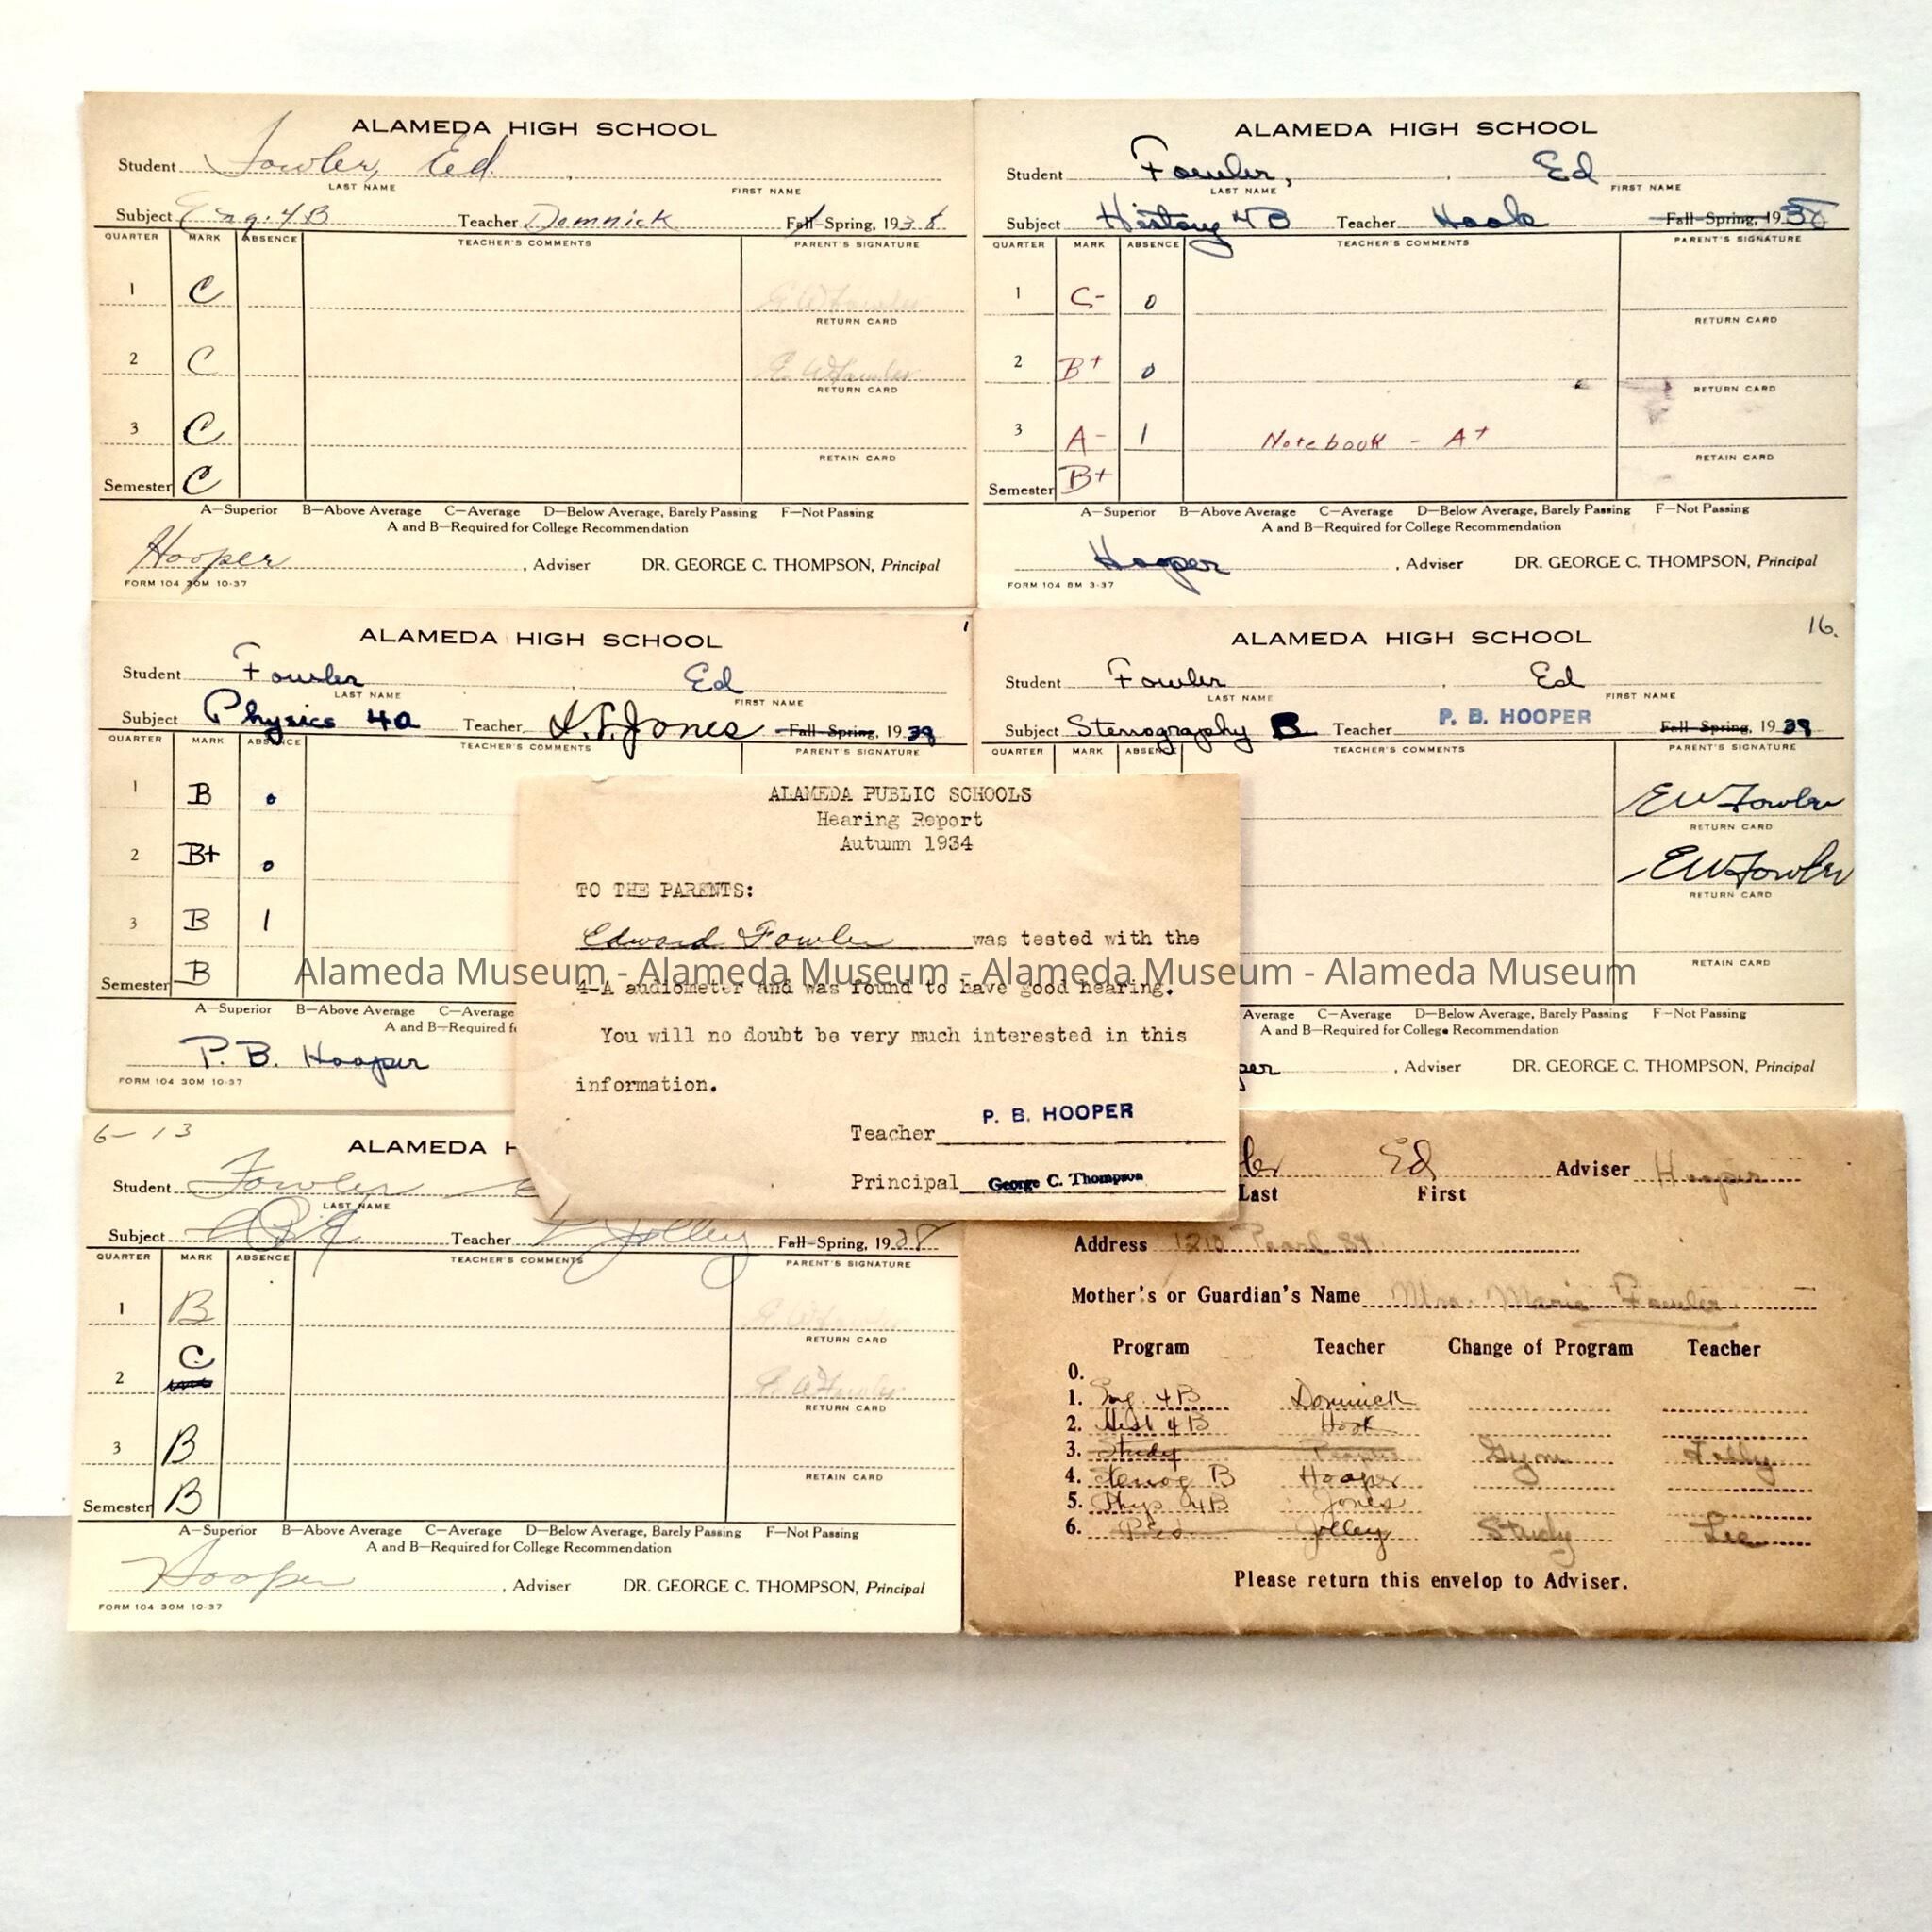 ALAMEDA HIGH SCHOOL
Student Fowler, Ed.
LAST NAME FIRST NAME
Subject Eng. 4B Teacher Domnick Fall-Spring, 1938
QUARTER MARK ABSENCE TEACHER'S COMMENTS PARENT'S SIGNATURE
1 C E W Fowler
RETURN CARD
2 C E. W Fowler
RETURN CARD
3 C
RETAIN CARD
Semester C
A—Superior B—Above Average C—Average D—Below Average, Barely Passing F—Not Passing
A and B—Required for College Recommendation
Hooper, Adviser DR. GEORGE C. THOMPSON, Principal
FORM 104 30M 10-37
ALAMEDA HIGH SCHOOL
Student Fowler, Ed
LAST NAME FIRST NAME
Subject History 4B Teacher Hook Fall-Spring, 1938
QUARTER MARK ABSENCE TEACHER'S COMMENTS PARENT'S SIGNATURE
1 C- 0
RETURN CARD
2 B+ 0
RETURN CARD
3 A- 1 Notebook - A+
RETAIN CARD
Semester B+
A—Superior B—Above Average C—Average D—Below Average, Barely Passing F—Not Passing
A and B—Required for College Recommendation
Hooper, Adviser DR. GEORGE C. THOMPSON, Principal
FORM 104 8M 3-37
ALAMEDA HIGH SCHOOL
Student Fowler Ed
LAST NAME FIRST NAME
Subject Physics 4a Teacher Jones Fall-Spring, 1938
QUARTER MARK ABSENCE TEACHER'S COMMENTS PARENT'S SIGNATURE
1 B 0
2 B+ 0
3 B 1
Semester B
A—Superior B—Above Average C—Average
A and B—Required f
P. B. Hooper
FORM 104 30M 10-37
16.
ALAMEDA HIGH SCHOOL
Student Fowler Ed
LAST NAME FIRST NAME
Subject Stenography B Teacher P. B. HOOPER Fall-Spring, 1938
QUARTER MARK ABSENCE TEACHER'S COMMENTS PARENT'S SIGNATURE
EW Fowler
RETURN CARD
EW Fowler
RETURN CARD
RETAIN CARD
Average C—Average D—Below Average, Barely Passing F—Not Passing
A and B—Required for College Recommendation
per, Adviser DR. GEORGE C. THOMPSON, Principal
ALAMEDA PUBLIC SCHOOLS
Hearing Report
Autumn 1934
TO THE PARENTS:
Edward Fowler was tested with the
4-A audiometer and was found to have good hearing.
You will no doubt be very much interested in this
information.
Teacher P. B. HOOPER
Principal George C. Thompson
Alameda Museum - Alameda Museum - Alameda Museum - Alameda Museum
6-13
ALAMEDA H
Student Fowler
LAST NAME
Subject Teacher Jolley Fall-Spring, 1938
QUARTER MARK ABSENCE TEACHER'S COMMENTS PARENT'S SIGNATURE
1 B E W Fowler
RETURN CARD
2 C E. W Fowler
RETURN CARD
3 B
RETAIN CARD
Semester B
A—Superior B—Above Average C—Average D—Below Average, Barely Passing F—Not Passing
A and B—Required for College Recommendation
Hooper, Adviser DR. GEORGE C. THOMPSON, Principal
FORM 104 30M 10-37
ler Ed Adviser Hooper
Last First
Address 1210 Pearl St.
Mother's or Guardian's Name Mrs. Marie Fowler
Program Teacher Change of Program Teacher
0.
1. Eng. 4B Domnick
2. Hist 4B Hook
3. Study Gym
4. Stenog B Hooper
5. Phys 4B Jones
6. Jolley Study Lee
Please return this envelop to Adviser.